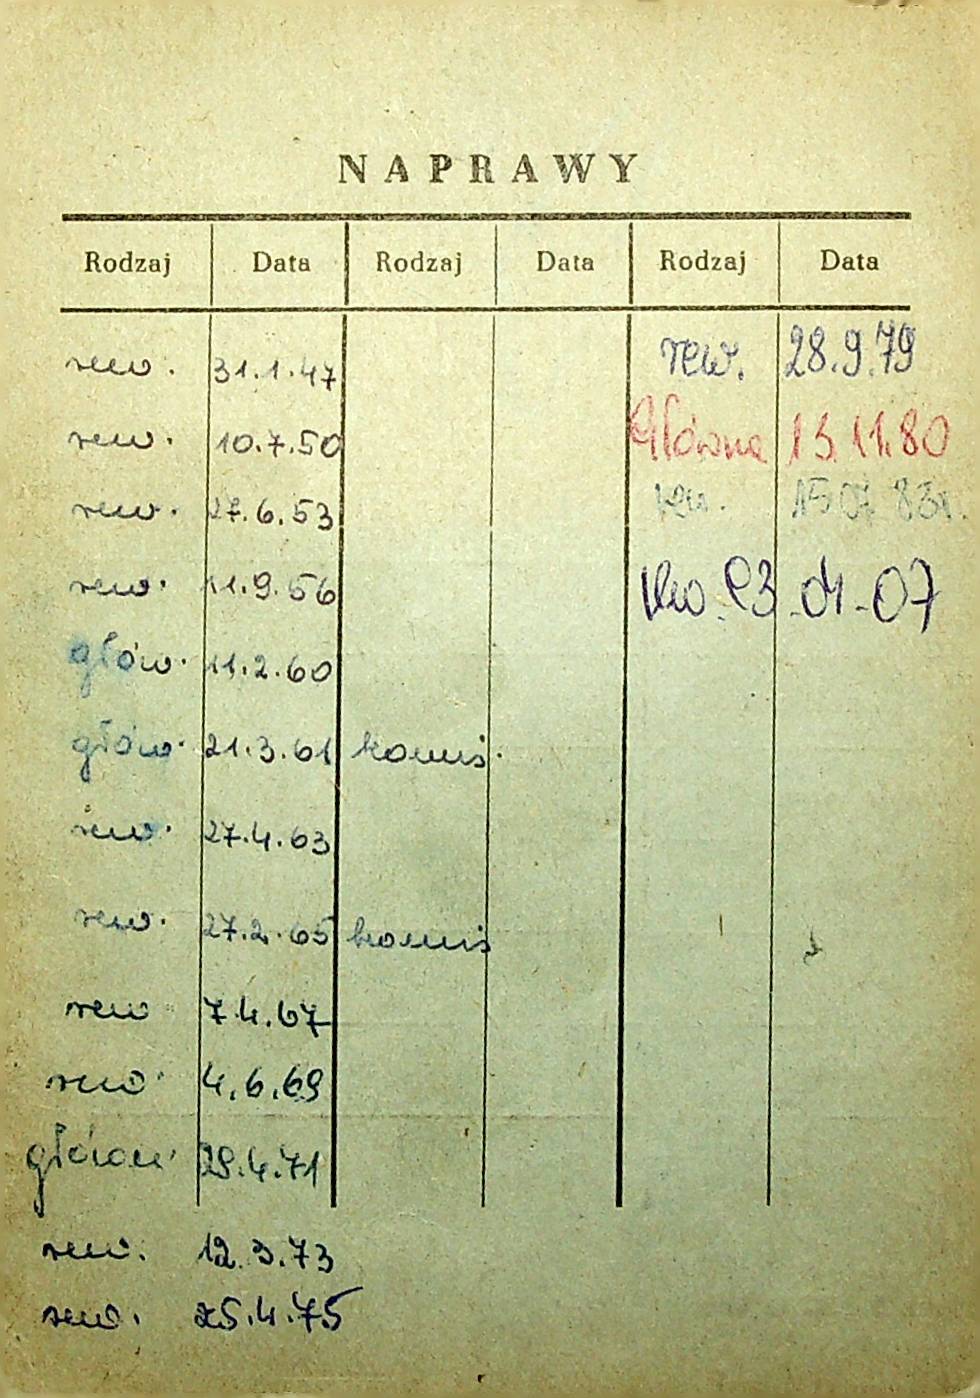 NAPRAWY
Rodzaj Data Rodzaj Data Rodzaj Data
rew. 31.1.47 rew. 28.9.79
rew. 10.7.50 Główna 13.11.80
rew. 27.6.53 rew. 15 07 83r.
rew. 11.9.56 rew. 93-04-07
głów. 11.2.60
głów. 21.3.61 komis.
rew. 27.4.63
rew. 27.2.65 komis
rew 7.4.67
rew. 4.6.69
główn. 29.4.71
rew. 12.3.73
rew. 25.4.75